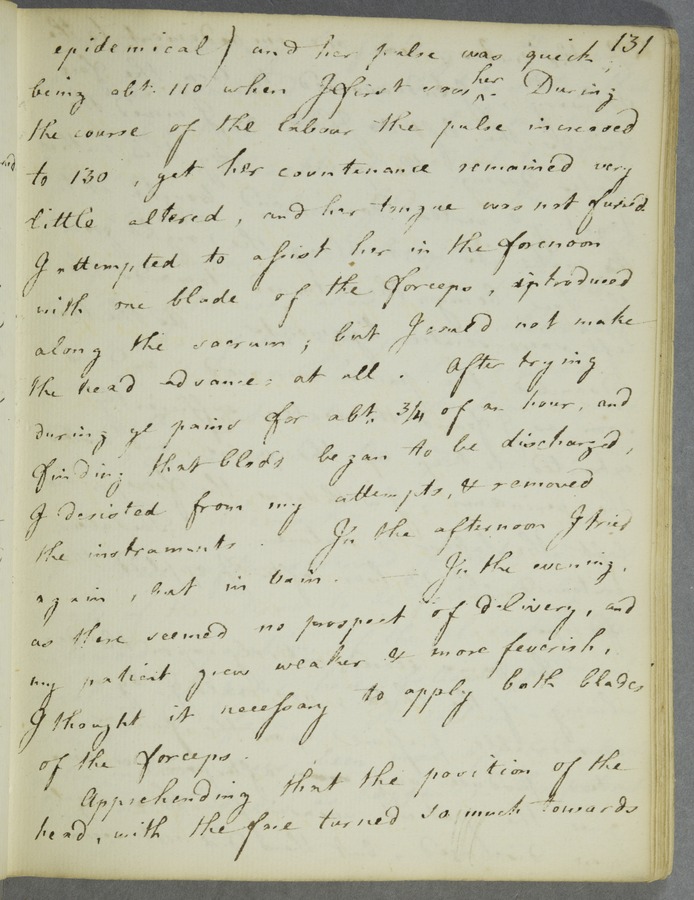 131
epidemical) and her pulse was quick;
being abt. 110 when I first saw her. During
the course of the labour the pulse increased
to 130, yet her countenance remained very
little altered, and her tongue was not furred.
I attempted to assist her in the forenoon
with one blade of the forceps, introduced
along the sacrum; but I could not make
the head advance at all. After trying
during ye pains for abt. 3/4 of an hour, and
finding that blood began to be discharged,
I desisted from my attempts, & removed
the instruments. In the afternoon I tried
again, but in vain. — In the evening,
as there seemed no prospect of delivery, and
my patient grew weaker & more feverish,
I thought it necessary to apply both blades
of the forceps.
Apprehending that the position of the
head, with the face turned so much towards